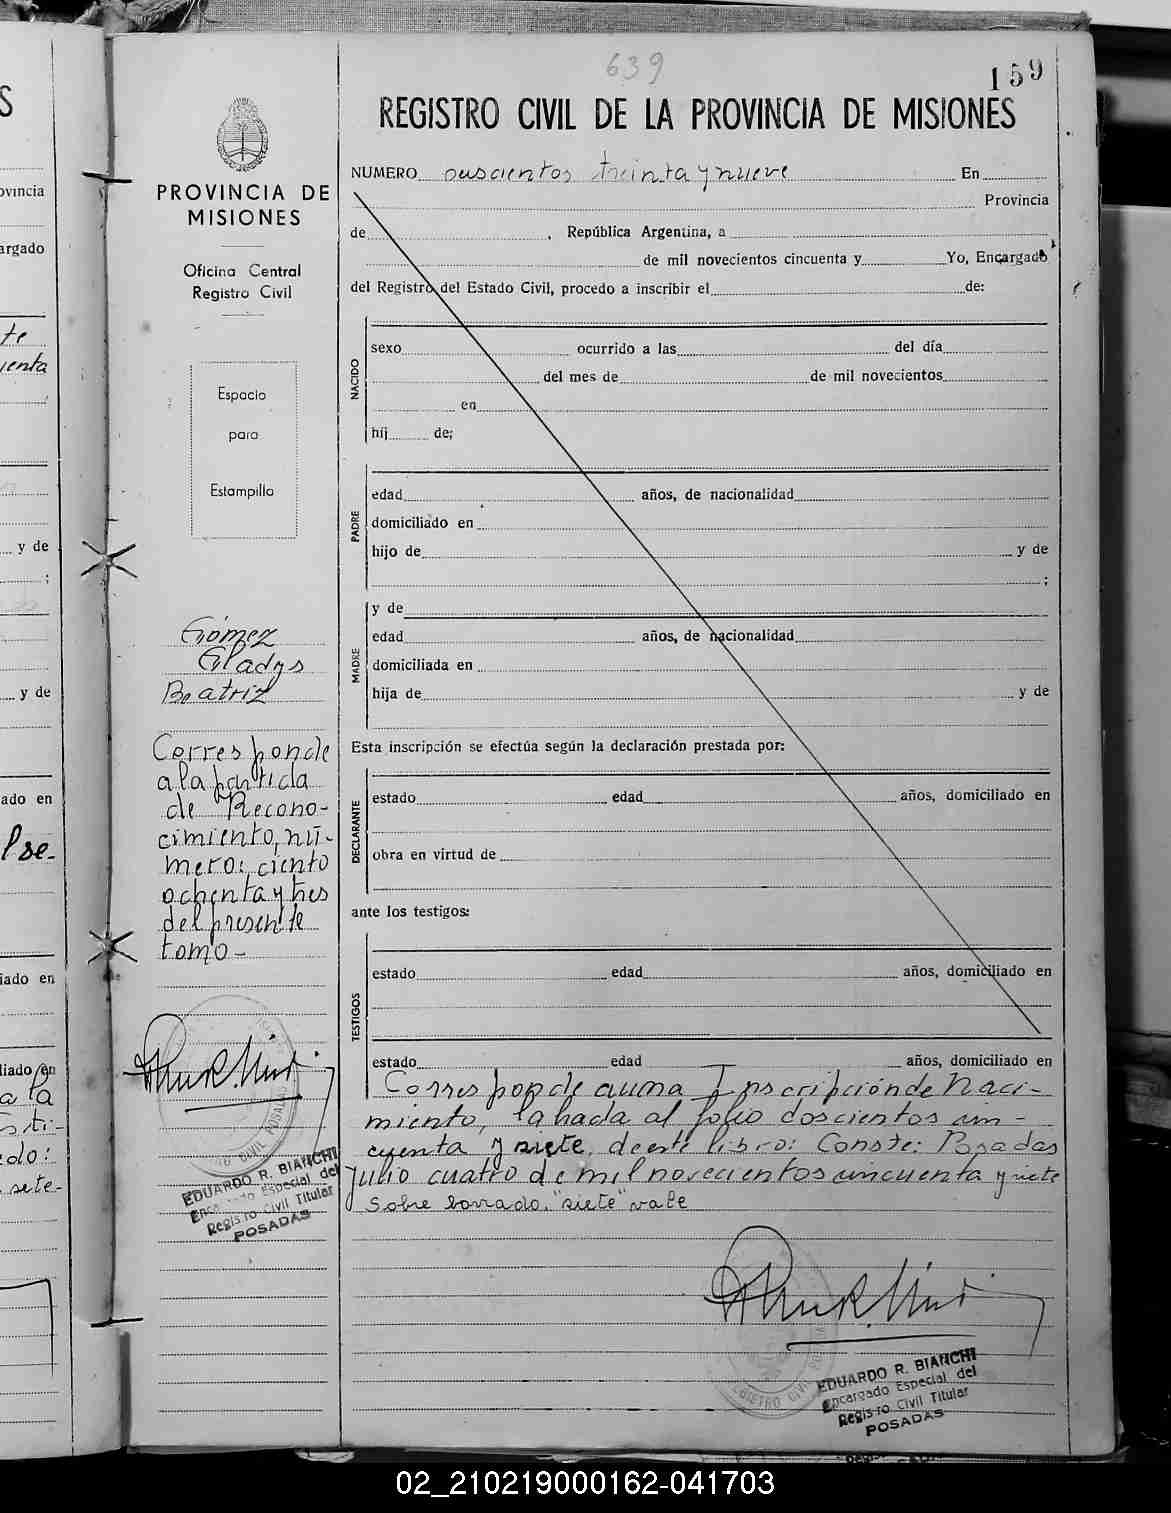 639
159
REGISTRO CIVIL DE LA PROVINCIA DE MISIONES
NUMERO seiscientos treinta y nueve En
Provincia
de , República Argentina, a
de mil novecientos cincuenta y Yo, Encargado
del Registro del Estado Civil, procedo a inscribir el de:
NACIDO
sexo ocurrido a las del día
del mes de de mil novecientos
en
hij de;
PADRE
edad años, de nacionalidad
domiciliado en
hijo de y de
;
MADRE
y de
edad años, de nacionalidad
domiciliada en
hija de y de
Esta inscripción se efectúa según la declaración prestada por:
DECLARANTE
estado edad años, domiciliado en
obra en virtud de
ante los testigos:
TESTIGOS
estado edad años, domiciliado en
estado edad años, domiciliado en
Corresponde a una Inscripción de Naci-
miento, labrada al folio doscientos cin-
cuenta y siete, de este libro: Conste: Posadas
Julio cuatro de mil novecientos cincuenta y siete
Sobre borrado: "siete" vale
EDUARDO R. BIANCHI
Encargado Especial del
Registro Civil Titular
POSADAS
PROVINCIA DE
MISIONES
Oficina Central
Registro Civil
Espacio
para
Estampilla
Gómez
Gladys
Beatriz
Corresponde
a la partida
de Recono-
cimiento, nú-
mero: ciento
ochenta y tres
del presente
tomo -
EDUARDO R. BIANCHI
Encargado Especial del
Registro Civil Titular
POSADAS
S
ovincia
argado
te
uenta
y de
;
y de
ado en
lse-
iado en
liado en
a la
do:
siete-
02_210219000162-041703